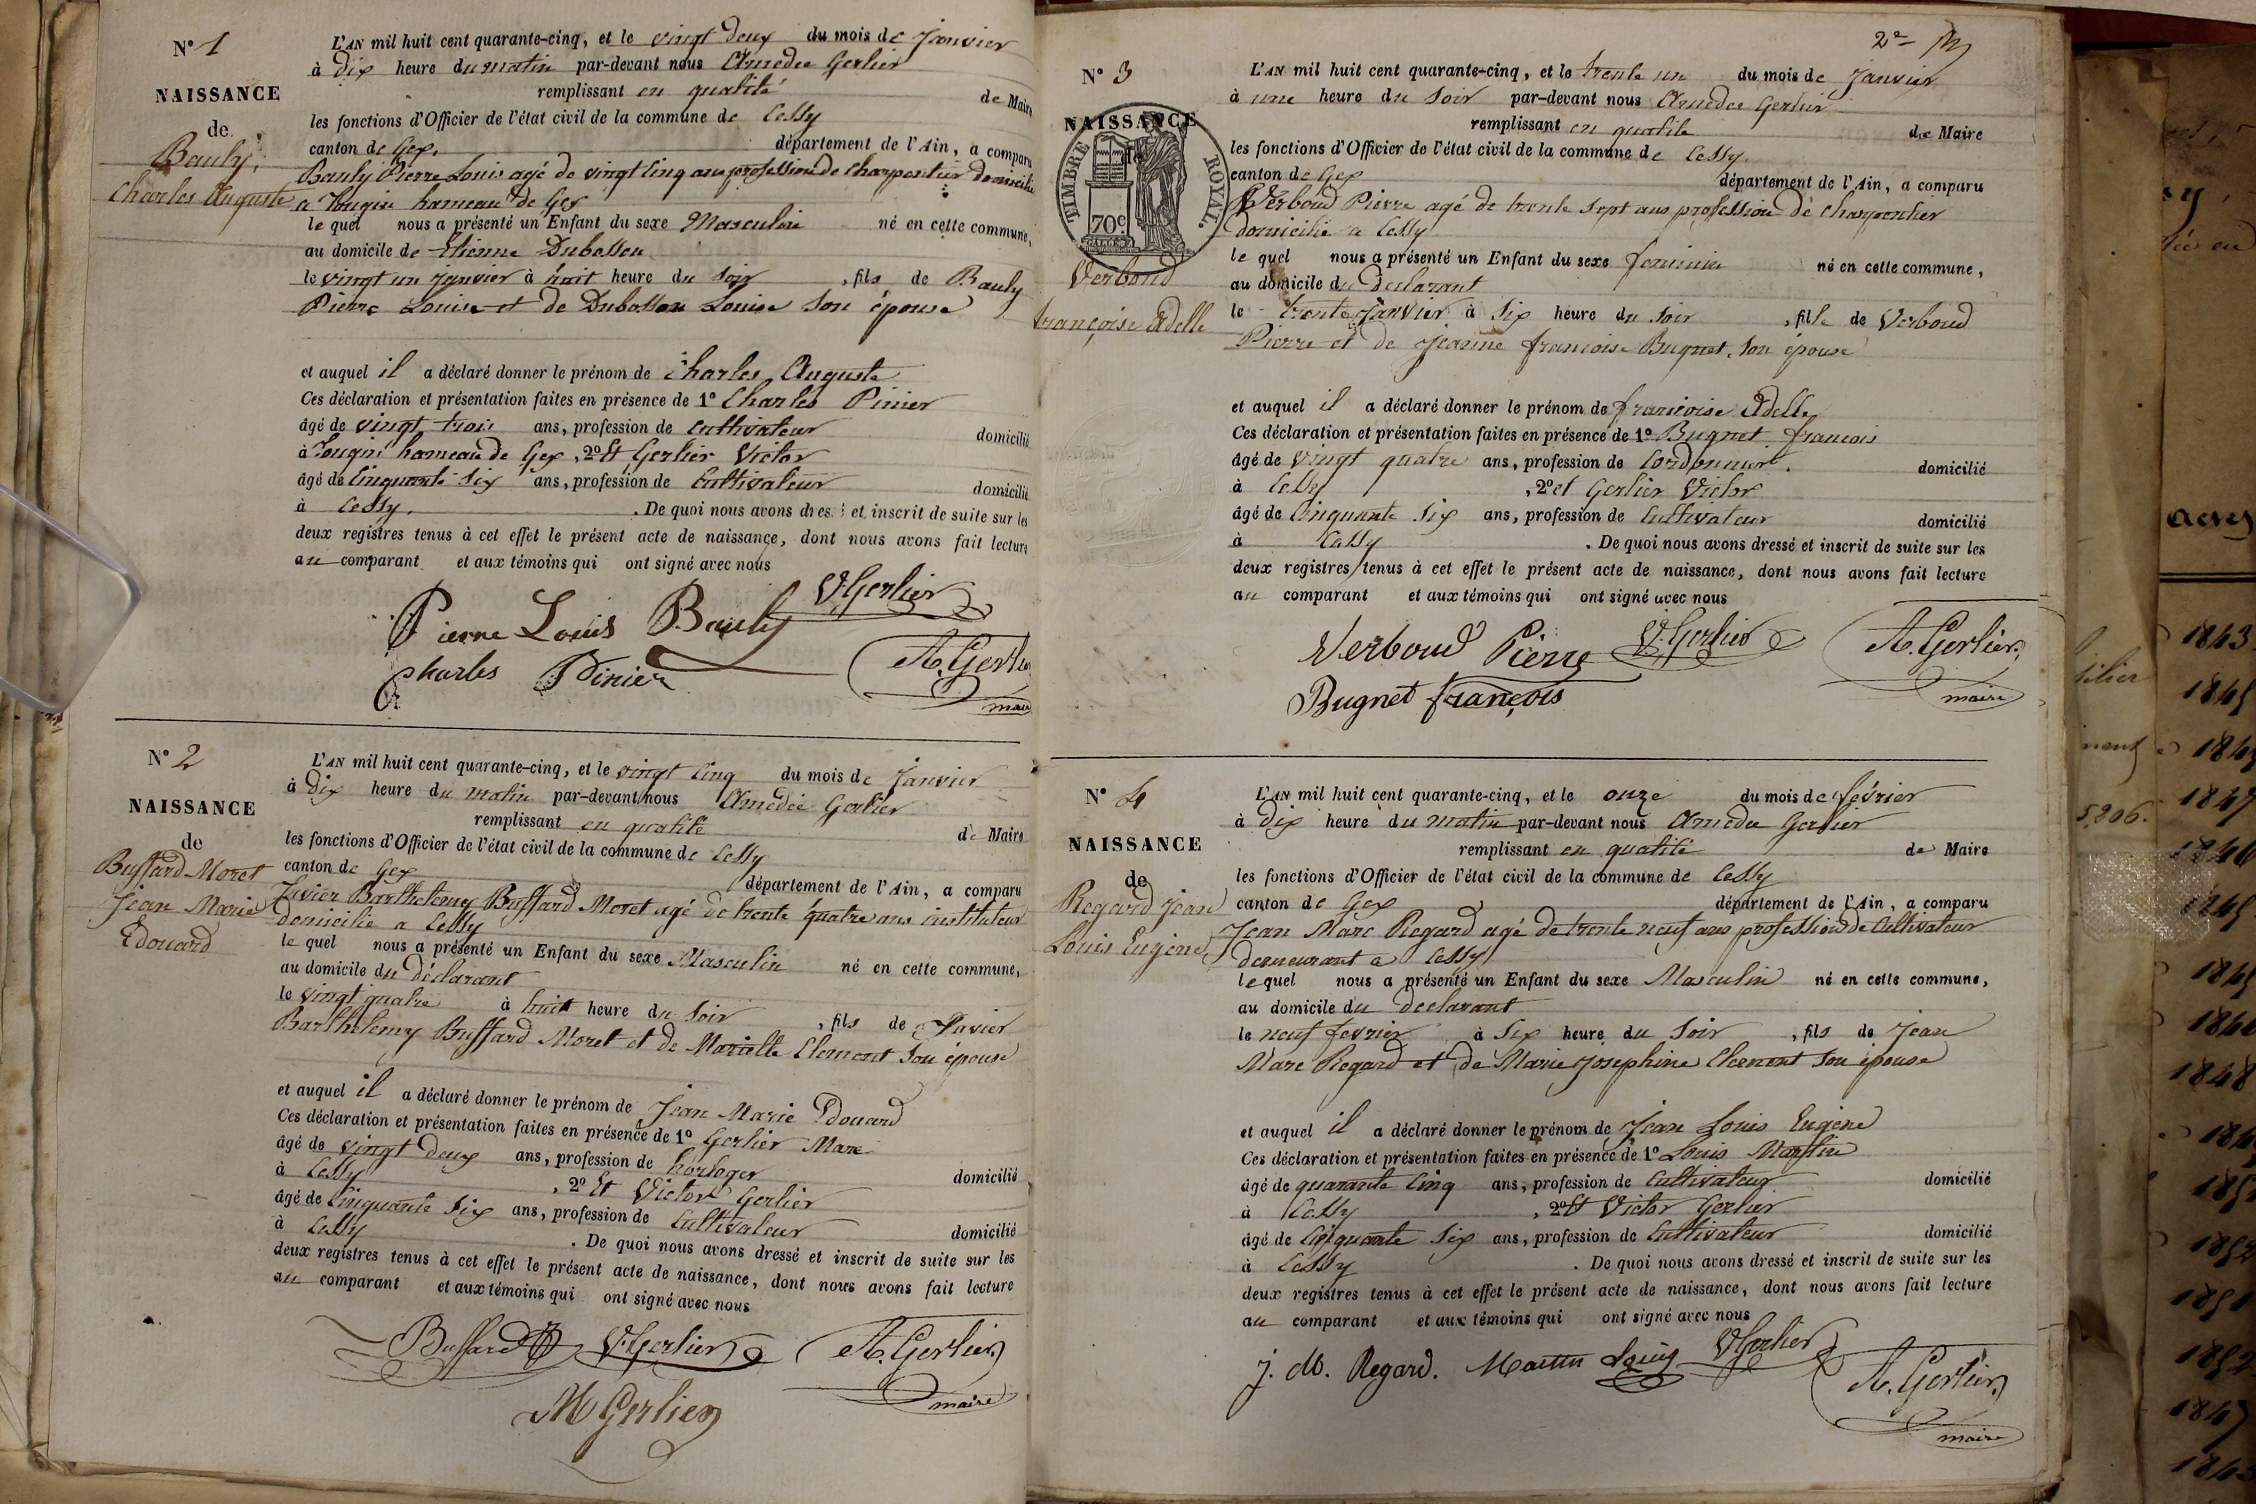 N° 1
NAISSANCE
de
Bauly,
Charles Auguste
L'AN mil huit cent quarante-cinq, et le vingt deux du mois de Janvier
à dix heure du matin par-devant nous Amédée Gerlier
remplissant en qualité de Maire
les fonctions d'Officier de l'état civil de la commune de Cessy
canton de Gex. département de l'Ain, a comparu
Bauly Pierre Louis agé de vingt cinq ans profession de charpentier domicilié
a Tougin hameau de Gex
le quel nous a présenté un Enfant du sexe Masculin né en cette commune,
au domicile de Etienne Dubosson
le vingt un janvier à huit heure du soir, fils de Bauly
Pierre Louis et de Dubosson Louise son épouse
et auquel il a déclaré donner le prénom de Charles Auguste
Ces déclaration et présentation faites en présence de 1° Charles Pinier
âgé de vingt trois ans, profession de cultivateur domicilié
à Tougin hameau de Gex, 2° Et Gerlier Victor
âgé de cinquante six ans, profession de cultivateur domicilié
à Cessy. . De quoi nous avons dressé et inscrit de suite sur les
deux registres tenus à cet effet le présent acte de naissance, dont nous avons fait lecture
au comparant et aux témoins qui ont signé avec nous
V. Gerlier
Pierre Louis Bauly
Charles Pinier
A. Gerlier
maire
N° 2
NAISSANCE
de
Buffard Moret
Jean Marie
Edouard
L'AN mil huit cent quarante-cinq, et le vingt cinq du mois de Janvier
à dix heure du matin par-devant nous Amédée Gerlier
remplissant en qualité de Maire
les fonctions d'Officier de l'état civil de la commune de Cessy
canton de Gex département de l'Ain, a comparu
Barthelemy Buffard Moret agé de trente quatre ans instituteur
domicilié a Cessy
le quel nous a présenté un Enfant du sexe Masculin né en cette commune,
au domicile du déclarant
le vingt quatre à huit heure du soir, fils de
Barthelemy Buffard Moret et de Clement son épouse
et auquel il a déclaré donner le prénom de Jean Marie Edouard
Ces déclaration et présentation faites en présence de 1° Gerlier Marc
âgé de vingt deux ans, profession de horloger domicilié
à Cessy, 2° Et Victor Gerlier
âgé de cinquante six ans, profession de cultivateur domicilié
à Cessy . De quoi nous avons dressé et inscrit de suite sur les
deux registres tenus à cet effet le présent acte de naissance, dont nous avons fait lecture
au comparant et aux témoins qui ont signé avec nous
Buffard V. Gerlier A. Gerlier
maire
M Gerlier
2e
N° 3
NAISSANCE
de
TIMBRE ROYAL.
70c
Verboud
françoise Adelle
L'AN mil huit cent quarante-cinq, et le trente un du mois de Janvier
à une heure du soir par-devant nous Amédée Gerlier
remplissant en qualité de Maire
les fonctions d'Officier de l'état civil de la commune de Cessy.
canton de Gex département de l'Ain, a comparu
Verboud Pierre agé de trente sept ans profession de charpentier
domicilié a Cessy
le quel nous a présenté un Enfant du sexe feminin né en cette commune,
au domicile du declarant
le trente Janvier à six heure du soir, fille de Verboud
Pierre et de Jeanne francoise Bugnet son épouse
et auquel il a déclaré donner le prénom de francoise Adelle
Ces déclaration et présentation faites en présence de 1° Bugnet francois
âgé de vingt quatre ans, profession de Cordonnier. domicilié
à Cessy, 2° et Gerlier Victor
âgé de cinquante six ans, profession de cultivateur domicilié
à Cessy . De quoi nous avons dressé et inscrit de suite sur les
deux registres tenus à cet effet le présent acte de naissance, dont nous avons fait lecture
au comparant et aux témoins qui ont signé avec nous
Verboud Pierre V. Gerlier A. Gerlier
maire
Bugnet françois
N° 4
NAISSANCE
de
Regard Jean
Louis Eugène
L'AN mil huit cent quarante-cinq, et le onze du mois de février
à dix heure du matin par-devant nous Amedée Gerlier
remplissant en qualité de Maire
les fonctions d'Officier de l'état civil de la commune de Cessy
canton de Gex département de l'Ain, a comparu
Jean Marc Regard agé de trente neuf ans profession de cultivateur
demeurant a Cessy
le quel nous a présenté un Enfant du sexe Masculin né en cette commune,
au domicile du declarant
le neuf fevrier à six heure du soir, fils de Jean
Marc Regard et de Marie Josephine Clement son épouse
et auquel il a déclaré donner le prénom de Jean Louis Eugène
Ces déclaration et présentation faites en présence de 1° Louis Martin
âgé de quarante cinq ans, profession de cultivateur domicilié
à Cessy, 2° Et Victor Gerlier
âgé de cinquante six ans, profession de cultivateur domicilié
à Cessy . De quoi nous avons dressé et inscrit de suite sur les
deux registres tenus à cet effet le présent acte de naissance, dont nous avons fait lecture
au comparant et aux témoins qui ont signé avec nous
J. M. Regard. Martin Louis V. Gerlier
A. Gerlier
maire
1843
1845
1847
1848